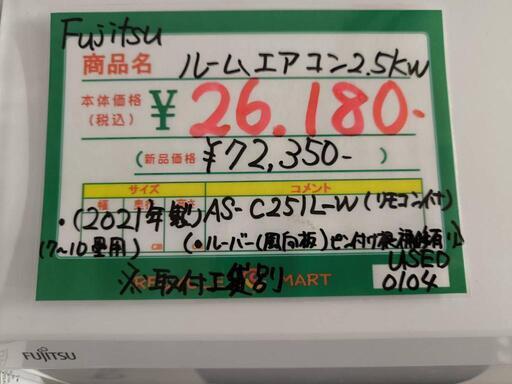 Fujitsu
商品名 ルームエアコン2.5kW
本体価格 (税込) ¥26.180-
(新品価格 ¥72,350-)
サイズ コメント
・(2021年製) AS-C251L-W (リモコン付)
(7~10畳用) (・ルーバー(風向板)ピン付け
※取付工賃別 USED
MART 0104
FUJITSU